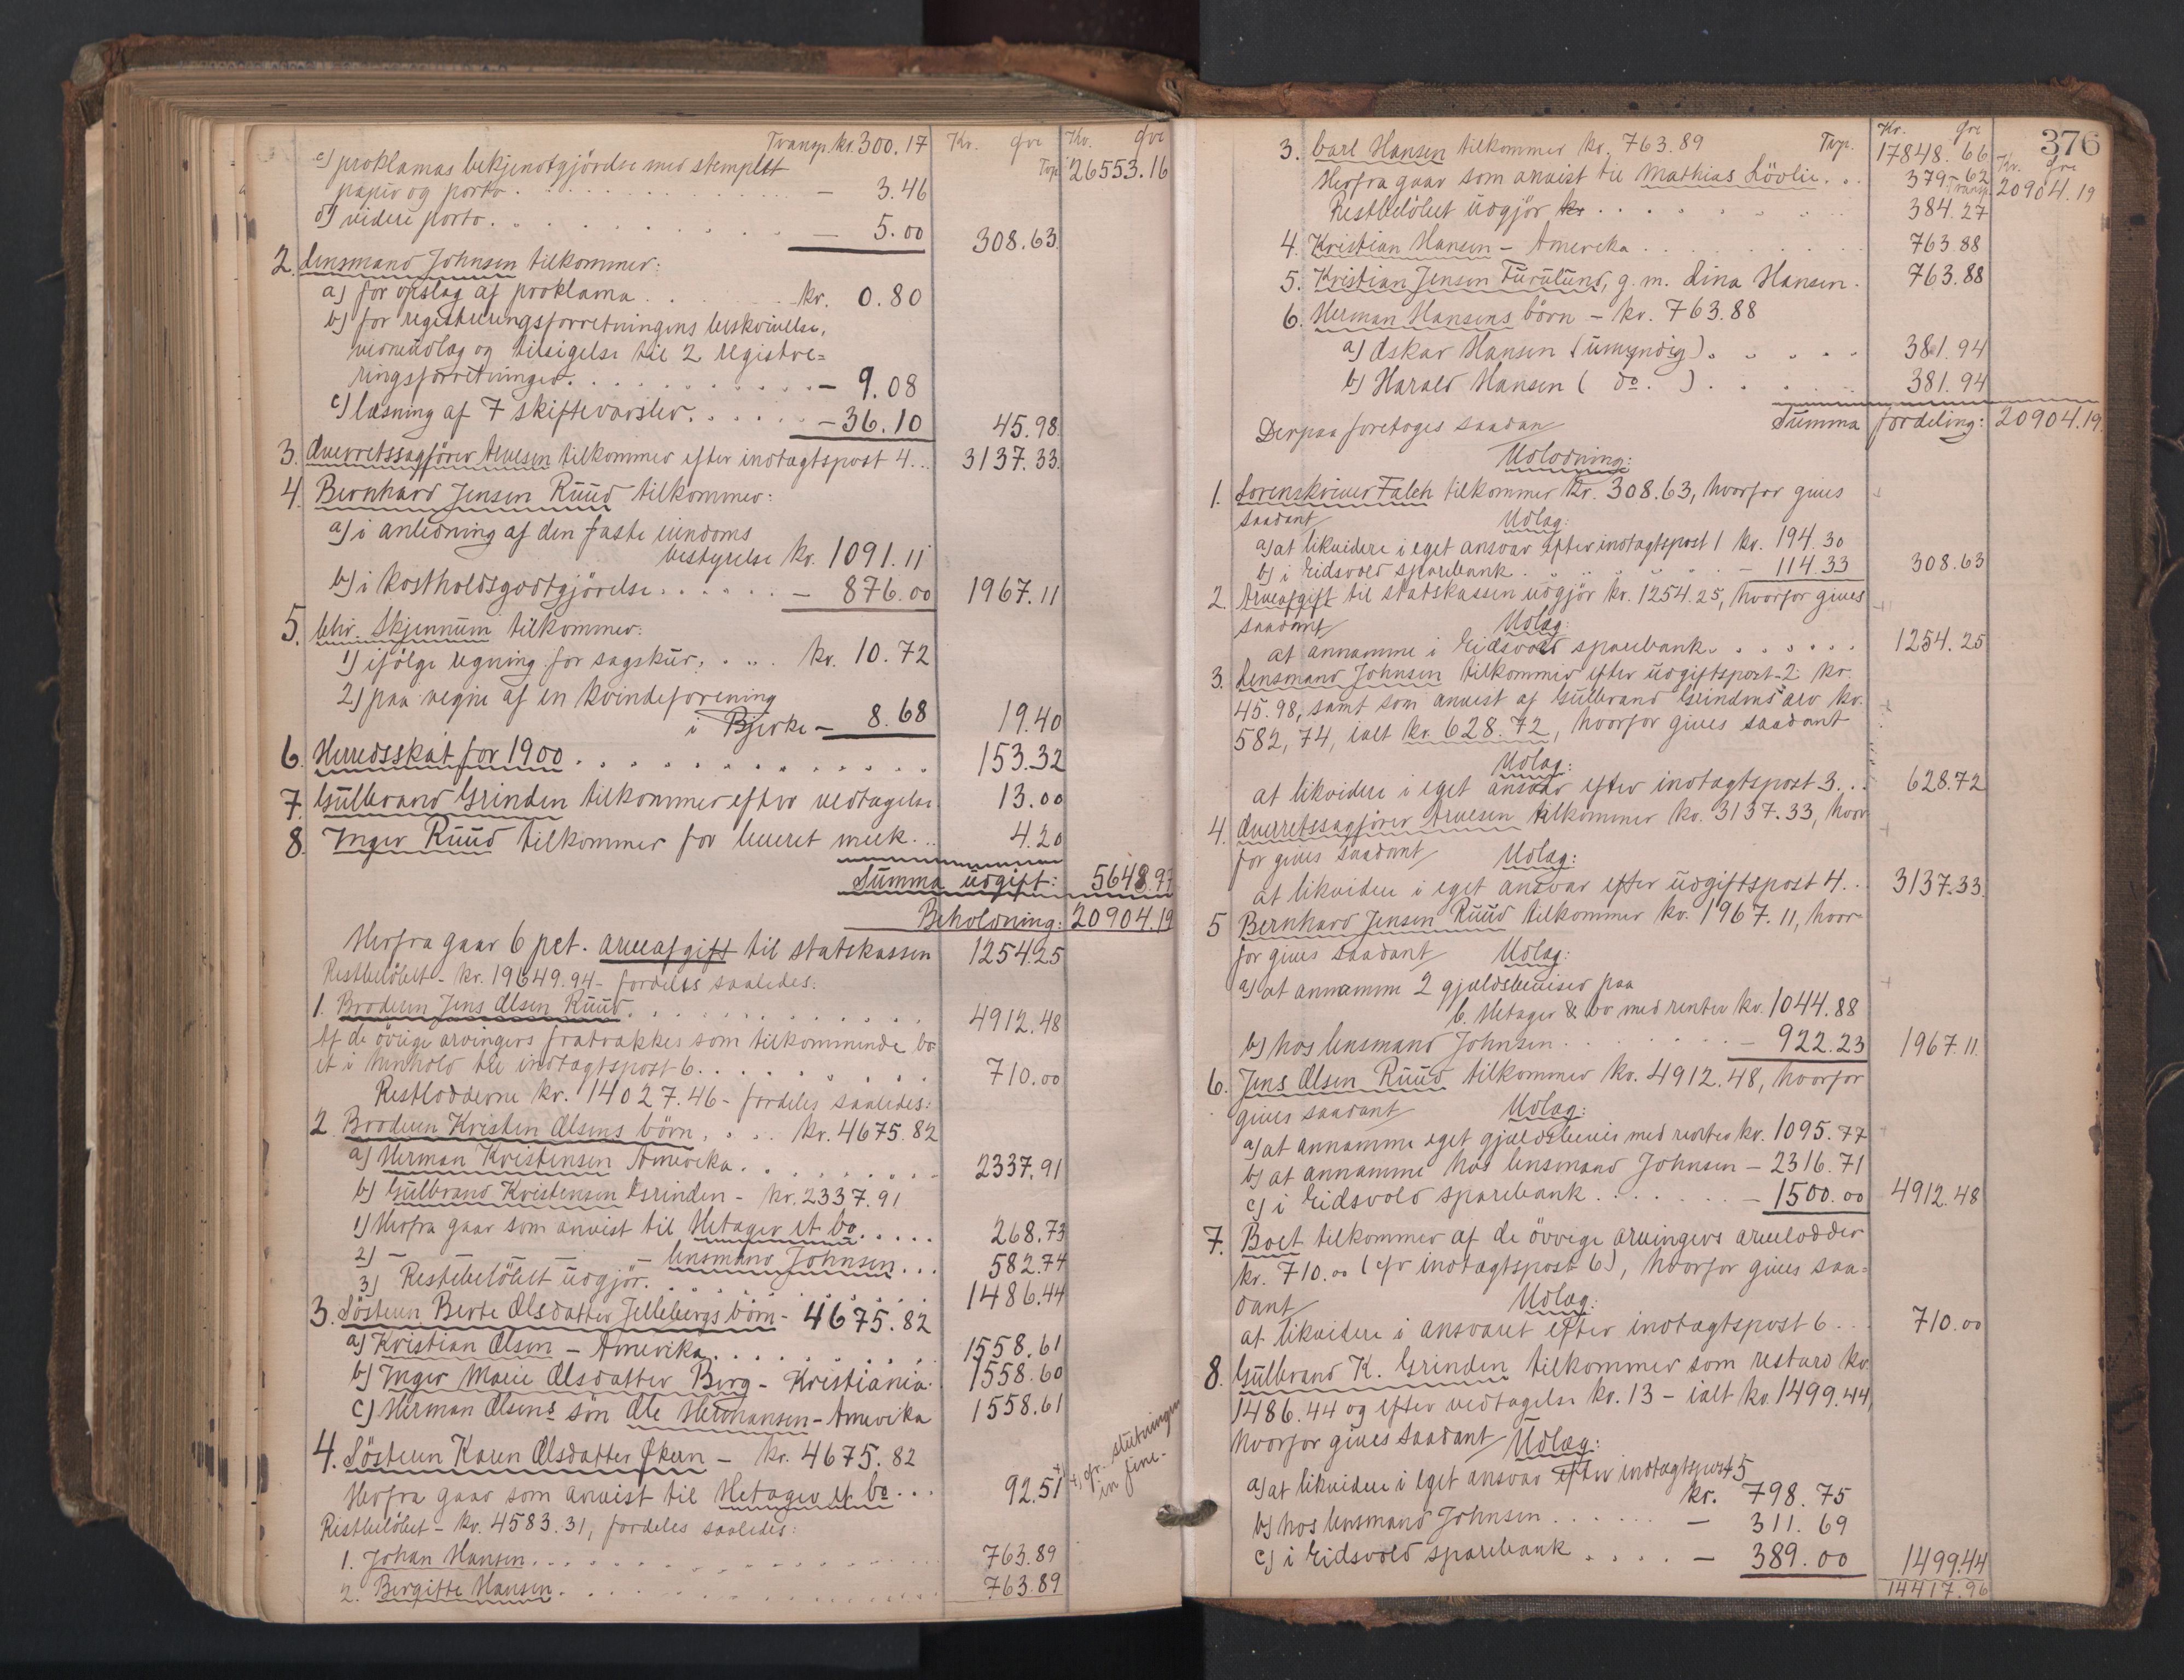 Transp. kr. 300.17 Kr. Øre Kr. Øre
c) proklamas bekjendtgjörelse med stemplet Trp. 26553.16
papir og porto . . . — 3.46
d) videre porto . . . — 5.00 308.63
2. Lensmand Johnsen tilkommer:
a) for opslag af proklama . . . kr. 0.80
b) for registreringsforretningens beskrivelse,
vidneudlæg og tilsigelse til 2 registre=
ringsforretninger . . . — 9.08
c) læsning af 7 skiftevarsler . . . — 36.10 45.98
3. Overretssagförer Arnesen tilkommer efter indtægtspost 4 . . 3137.33
4. Bernhard Jensen Ruud tilkommer:
a) i anledning af den faste eiendoms
bestyrelse kr. 1091.11
b) i kostholdsgodtgjörelse . . . — 876.00 1967.11
5. Chr. Skjennum tilkommer:
1) ifölge regning for sagskur . . . kr. 10.72
2) paa vegne af en kvindeforening
i Bjerke — 8.68 19.40
6. Herredsskat for 1900 . . . 153.32
7. Gulbrand Grinden tilkommer efter vedtagelse 13.00
8. Inger Ruud tilkommer for leveret melk . . 4.20
Summa udgift: 5648.97
Beholdning: 20904.19
Herfra gaar 6 pct. arveafgift til statskassen 1254.25
Restbelöbet - kr. 19649.94 - fordeles saaledes:
1. Broderen Jens Olsen Ruud . . . 4912.48
Af de övrige arvingers fratrækkes som tilkommende bo-
et i henhold til indtægtspost 6 . . . 710.00
Restlodderne kr. 14027.46 - fordeles saaledes:
2. Broderen Kristen Olsens börn . . . kr. 4675.82
a) Herman Kristensen Amerika . . . 2337.91
b) Gulbrand Kristensen Grinden - kr. 2337.91
1) Herfra gaar som anvist til Metager et bo . . . 268.73
2) — — — — lensmand Johnsen . . . 582.74
3) Restebelöbet udgjör . . . 1486.44
3. Sösteren Berte Olsdatter Jellebergs börn - 4675.82
a) Kristian Olsen - Amerika . . . 1558.61
b) Inger Marie Olsdatter Berg - Kristiania . 1558.60
c) Herman Olsens sön Ole Hermansen - Amerika 1558.61
4. Sösteren Karen Olsdatter Økern - kr. 4675.82
Herfra gaar som anvist til Metager et bo . . . 92.51 +) +) cfr. slutningen
in fine.
Restbelöbet - kr. 4583.31, fordeles saaledes:
1. Johan Hansen . . . 763.89
2. Birgitte Hansen . . . 763.89
376
Kr. Øre
3. Carl Hansen tilkommer kr. 763.89 Trp. 17848.66 Kr. Øre
Herfra gaar som anvist til Mathias Lövlie . . 379.62 Transp. 20904.19
Restbelöbet udgjör kr . . . 384.27
4. Kristian Hansen - Amerika . . . 763.88
5. Kristian Jensen Furulund, g. m. Lina Hansen . 763.88
6. Herman Hansens börn - kr. 763.88
a) Oskar Hansen (umyndig) . . . 381.94
b) Harald Hansen ( do. ) . . . 381.94
Summa fordeling: 20904.19
Derpaa foretoges saadan
Udlodning:
1. Sorenskriver Falch tilkommer kr. 308.63, hvorfor gives
saadant Udlæg:
a) at likvidere i eget ansvar efter indtægtspost 1 kr. 194.30
b) i Eidsvold sparebank . . . — 114.33 308.63
2. Arveafgift til statskassen udgjör kr. 1254.25, hvorfor gives
saadant Udlæg:
at annamme i Eidsvold sparebank . . . 1254.25
3. Lensmand Johnsen tilkommer efter udgiftspost 2 kr.
45.98, samt som anvist af Gulbrand Grindens arv kr.
582,74, ialt kr. 628.72, hvorfor gives saadant
Udlæg:
at likvidere i eget ansvar efter indtægtspost 3 . . 628.72
4. Overretssagförer Arnesen tilkommer kr. 3137.33, hvor
for gives saadant Udlæg:
at likvidere i eget ansvar efter udgiftspost 4 . . 3137.33
5 Bernhard Jensen Ruud tilkommer kr. 1967.11, hvor-
for gives saadant Udlæg:
a) at annamme 2 gjældsbeviser paa
C. Metager & bo med renter kr. 1044.88
b) hos lensmand Johnsen . . . — 922.23 1967.11
6. Jens Olsen Ruud tilkommer kr. 4912.48, hvorfor
gives saadant Udlæg:
a) at annamme eget gjældsbevis med renter kr. 1095.77
b) at annamme hos lensmand Johnsen — 2316.71
c) i Eidsvold sparebank . . . — 1500.00 4912.48
7. Boet tilkommer af de övrige arvingers arvelodder
kr. 710.00 (cfr indtægtspost 6), hvorfor gives saa=
dant Udlæg:
at likvidere i ansvaret efter indtægtspost 6 . . . 710.00
8. Gulbrand K. Grinden tilkommer som restarv kr.
1486.44 og efter vedtagelse kr. 13 - ialt kr. 1499.44,
hvorfor gives saadant Udlæg:
a) at likvidere i eget ansvar efter indtægtspost 5
kr. 798.75
b) hos lensmand Johnsen . . . — 311.69
c) i Eidsvold sparebank . . . — 389.00 1499.44
14417.96